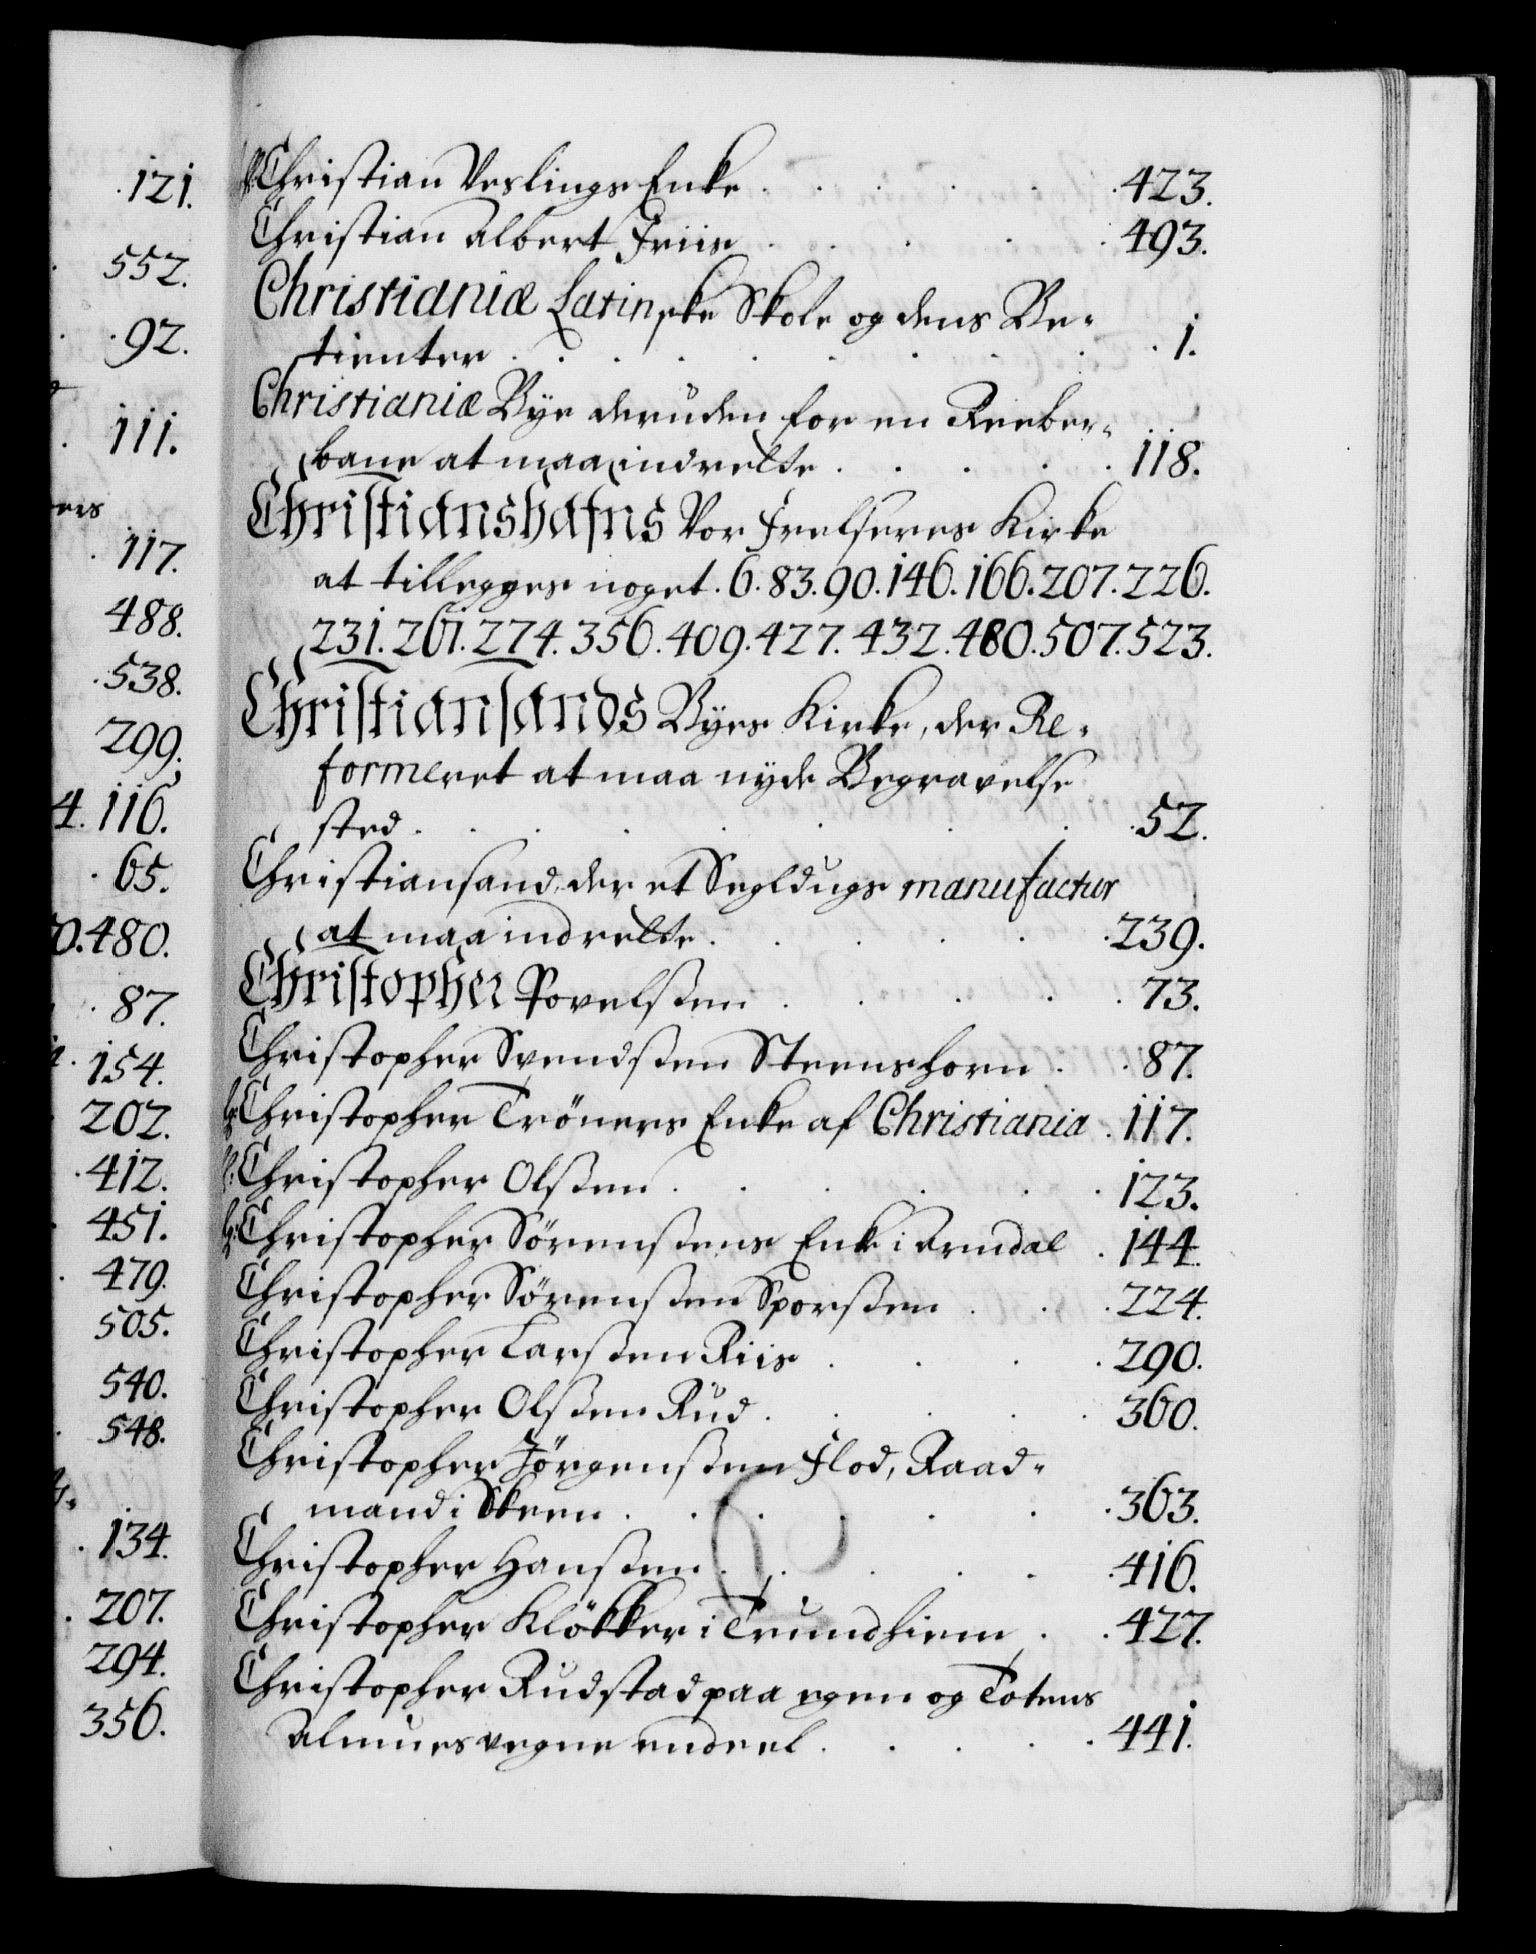 121.
552.
92.
111.
ers
117.
488.
538.
299.
4. 116.
65.
0. 480.
87.
154.
202.
412.
451.
479.
505.
540.
548.
134.
207.
294.
356.
Christian Veslings Enke . . . . . 423.
Christian Albert Friis . . . . . 493.
Christianiæ Latinske Skole og dens Be-
tienter . . . . . . . . 1.
Christianiæ Bye deruden for en Reeber-
bane at maa indrette . . . . . 118.
Christianshafns Vor Frelseres Kirke
at tillegges noget. 6. 83. 90. 146. 166. 207. 226.
231. 261. 274. 356. 409. 427. 432. 480. 507. 523.
Christiansands Byes Kirke, der Re-
formeret at maa nyde Begravelse
sted . . . . . . . 52.
Christiansand, der et Segldugs manufactur
at maa indrette . . . . . 239.
Christopher Povelsen . . . . . 73.
Christopher Svendsen Steenshorn . . 87.
Christopher Tröners Enke af Christiania . 117.
Christopher Olsen . . . . . . 123.
Christopher Sörensens Enke i Arndal . 144.
Christopher Sörensen Sporsen . . . 224.
Christopher Larsen Riis . . . . 290.
Christopher Olsen Rud . . . . . 360.
Christopher Jörgensen Flod, Raad-
mand i Skeen . . . . . . 363.
Christopher Hansen . . . . . 416.
Christopher Klökker i Trundhiem . . 427.
Christopher Rudstad paa egen og Totens
Almues vegne endeel . . . . . 441.